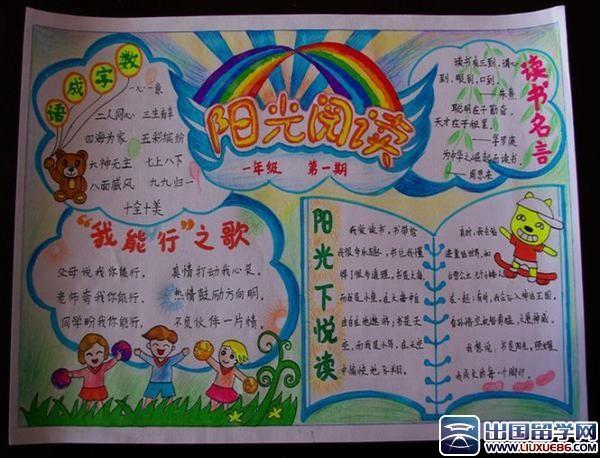 数字成语
一心一意
二人同心 三生有幸
四海为家 五彩缤纷
六神无主 七上八下
八面威风 九九归一
十全十美
阳光阅读
一年级 第一期
读书名言
读书有三到,谓心
到,眼到,口到。
——朱熹
聪明在于勤奋,
天才在于积累。
——华罗庚
为中华之崛起而读书。
——周恩来
“我能行”之歌
父母说我你能行,
真情打动我心菜。
老师寄我你能行,
热情鼓励方向明。
同学盼我你能行,
不负伙伴一片情。
阳光下悦读
我爱读书,书带给
我很多乐趣,书让我懂
得了很多道理,书是大海,
而我是小鱼,在大海中自
由自在地遨游;书是天
空,而我是小鸟,在天空
中愉快地飞翔。
有时,我会
我想说:书是阳光,照耀着
我成长的每一个脚印。
出国留学网
WWW.LIUXUE86.COM